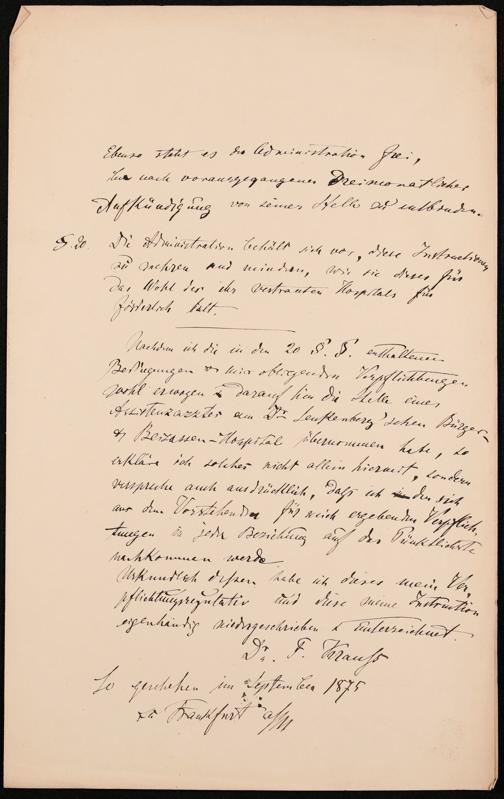 Ebenso steht es der Administration frei,
ihn nach vorausgegangener Dreimonatlicher
Aufkündigung von seiner Stelle zu entbinden.
§. 20. Die Administration behält sich vor, diese Instructionen
zu mehren und mindern, wie sie dieses für
das Wohl des ihr vertrauten Hospitals für
förderlich hält.
Nachdem ich die in den 20 §. §. enthaltenen
Bedingungen & mir obligenden Verpflichtungen
wohl erwogen & darauf hin die Stelle eines
Assistenzarztes am Dr. Senkenberg'schen Bürger-
& Beisassen-Hospital übernommen habe, so
erkläre ich solches nicht allein hiermit, sondern
verspreche auch ausdrücklich, daß ich den sich
aus dem Vorstehenden für mich ergebenden Verpflich-
tungen in jeder Beziehung auf das Pünktlichste
nachkommen werde.
Urkundlich dessen habe ich dieses mein Ver-
pflichtungsregulativ und diese meine Instruction
eigenhändig niedergeschrieben & unterzeichnet.
Dr. F. Krauß
So geschehen im September 1875
zu Frankfurt a/M